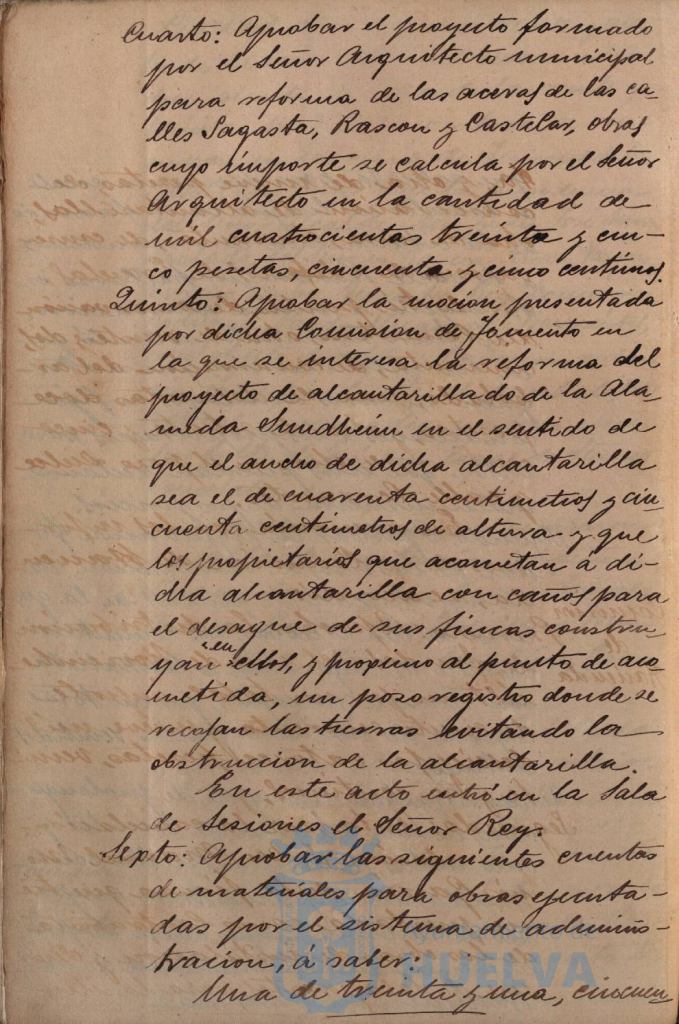 Cuarto: Aprobar el proyecto formado
por el Señor Arquitecto municipal
para reforma de las aceras de las ca-
lles Sagasta, Rascon y Castelar, obras
cuyo importe se calcula por el Señor
Arquitecto en la cantidad de
mil cuatrocientas treinta y cin-
co pesetas, cincuenta y cinco centimos.
Quinto: Aprobar la mocion presentada
por dicha Comision de Fomento en
la que se interesa la reforma del
proyecto de alcantarillado de la Ala-
meda Sundheim en el sentido de
que el ancho de dicha alcantarilla
sea el de cuarenta centimetros y cin
cuenta centimetros de altura y que
los propietarios que acometan á di-
cha alcantarilla con caños para
el desague de sus fincas constru-
yan "en" ellos, y proximo al punto de aco
metida, un poso registro donde se
recojan las tierras evitando la
obstruccion de la alcantarilla.
En este acto entró en la Sala
de Sesiones el Señor Rey.
Sexto: Aprobar las siguientes cuentas
de materiales para obras ejecuta-
das por el sistema de adminis-
tracion, á saber:
Una de treinta y una, cincuen
HUELVA